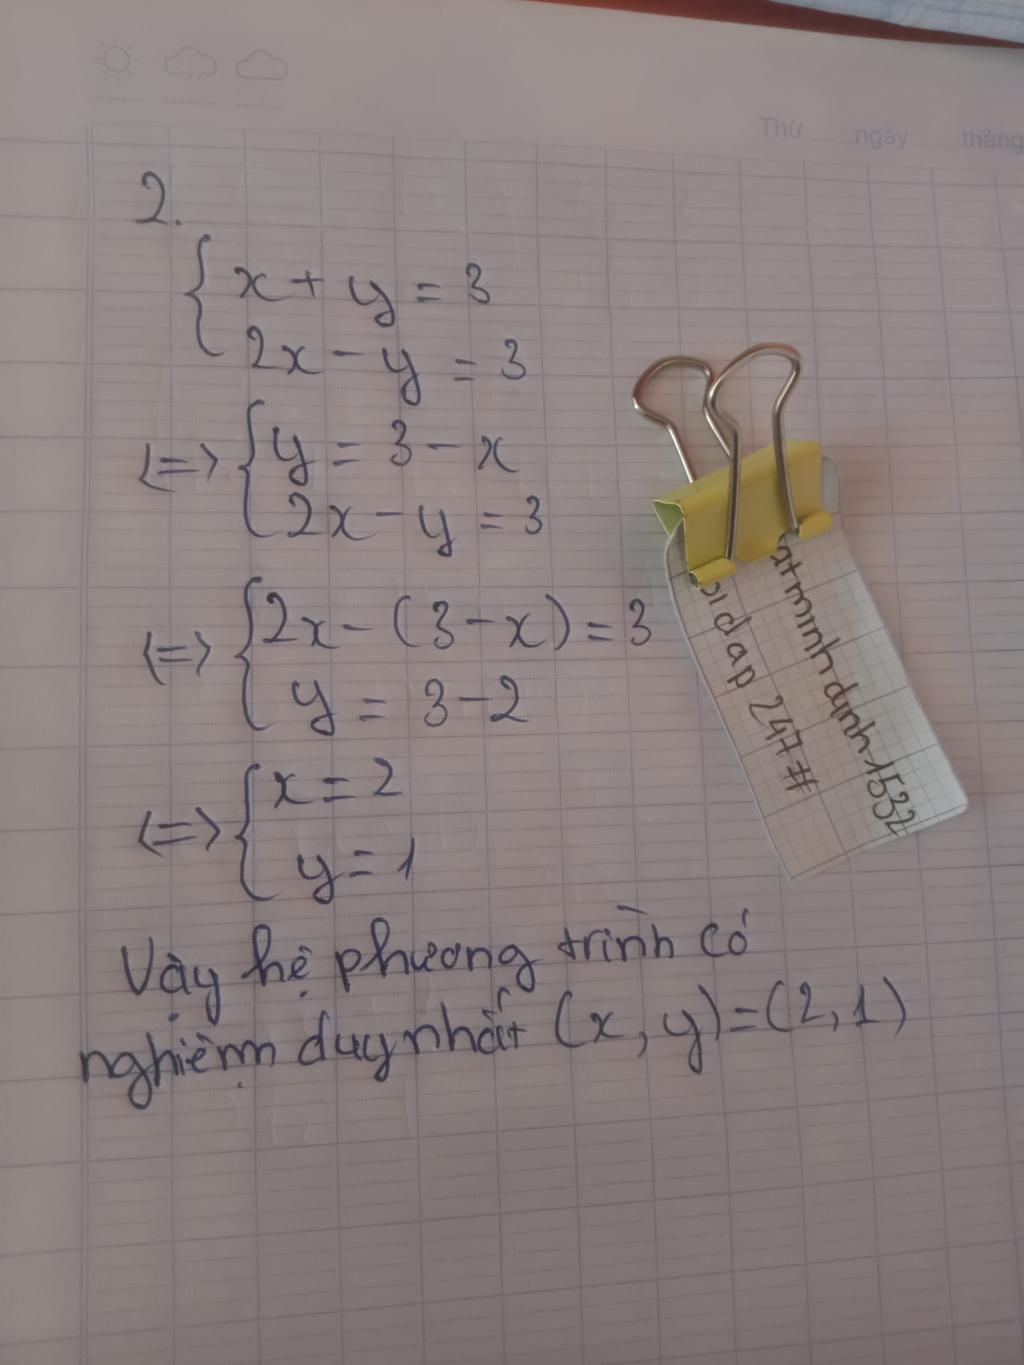 Thứ ngày tháng
2.
{ x + y = 3
2x - y = 3
<=> { y = 3 - x
2x - y = 3
<=> { 2x - (3 - x) = 3
y = 3 - 2
<=> { x = 2
y = 1
Vậy hệ phương trình có
nghiệm duy nhất (x, y) = (2, 1)
atminhdanh1532
idap 247#